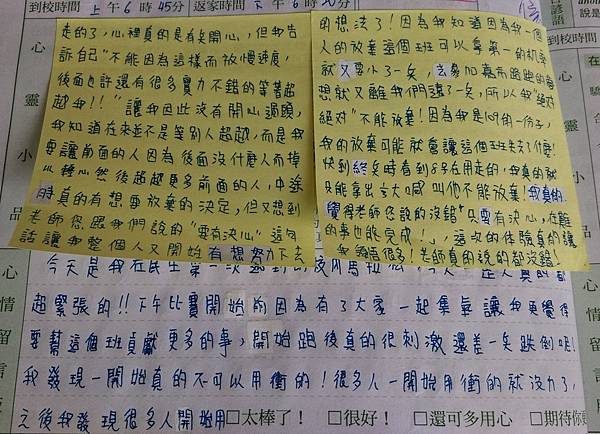 到校時間 上午6時45分 返家時間 下午6時20分
心靈小品
心情留言
今天是我在民生第一次遇到的校內馬拉松,今天一整天真的都
超緊張的!!下午比賽開始前因為有了大家一起集氣讓我更覺得
要幫這個班貢獻更多的事,開始跑後真的很刺激還差一點跌倒呢!
我發現一開始真的不可以用衝的!很多人一開始用衝的就沒力了,
之後我發現很多人開始用
走的了,心裡真的是有點開心,但我告
訴自己"不能因為這樣而放慢速度,
後面也許還有很多實力不錯的等著超
越我!!"讓我因此沒有開心過頭,
我知道在來並不是等別人超越,而是我
要讓前面的人因為後面沒什麼人而掉
以輕心然後超越更多前面的人,中途
時真的有想要放棄的決定,但又想到
老師您跟我們說的"要有決心"這句
話讓我整個人又開始有想努力下去
的想法了!因為我知道因為我一個
人的放棄這個班可以拿第一的机率
就又要小了一點,去參加嘉南路跑的夢
想就又離我們遠了一點,所以我"絕對
絕對"不能放棄!因為我是心佾一份子,
我的放棄可能就會讓這個班失去了什麼!
快到終點時看到8号在用走的,我真的就
只能拿出3大喊叫他不能放棄!我真的
覺得老師您說的沒錯"只要有決心,在難
的事也能完成!",這次的体驗真的讓
我領悟很多!老師真的說的都沒錯!
□太棒了! □很好! □還可多用心 □期待你
到校時間